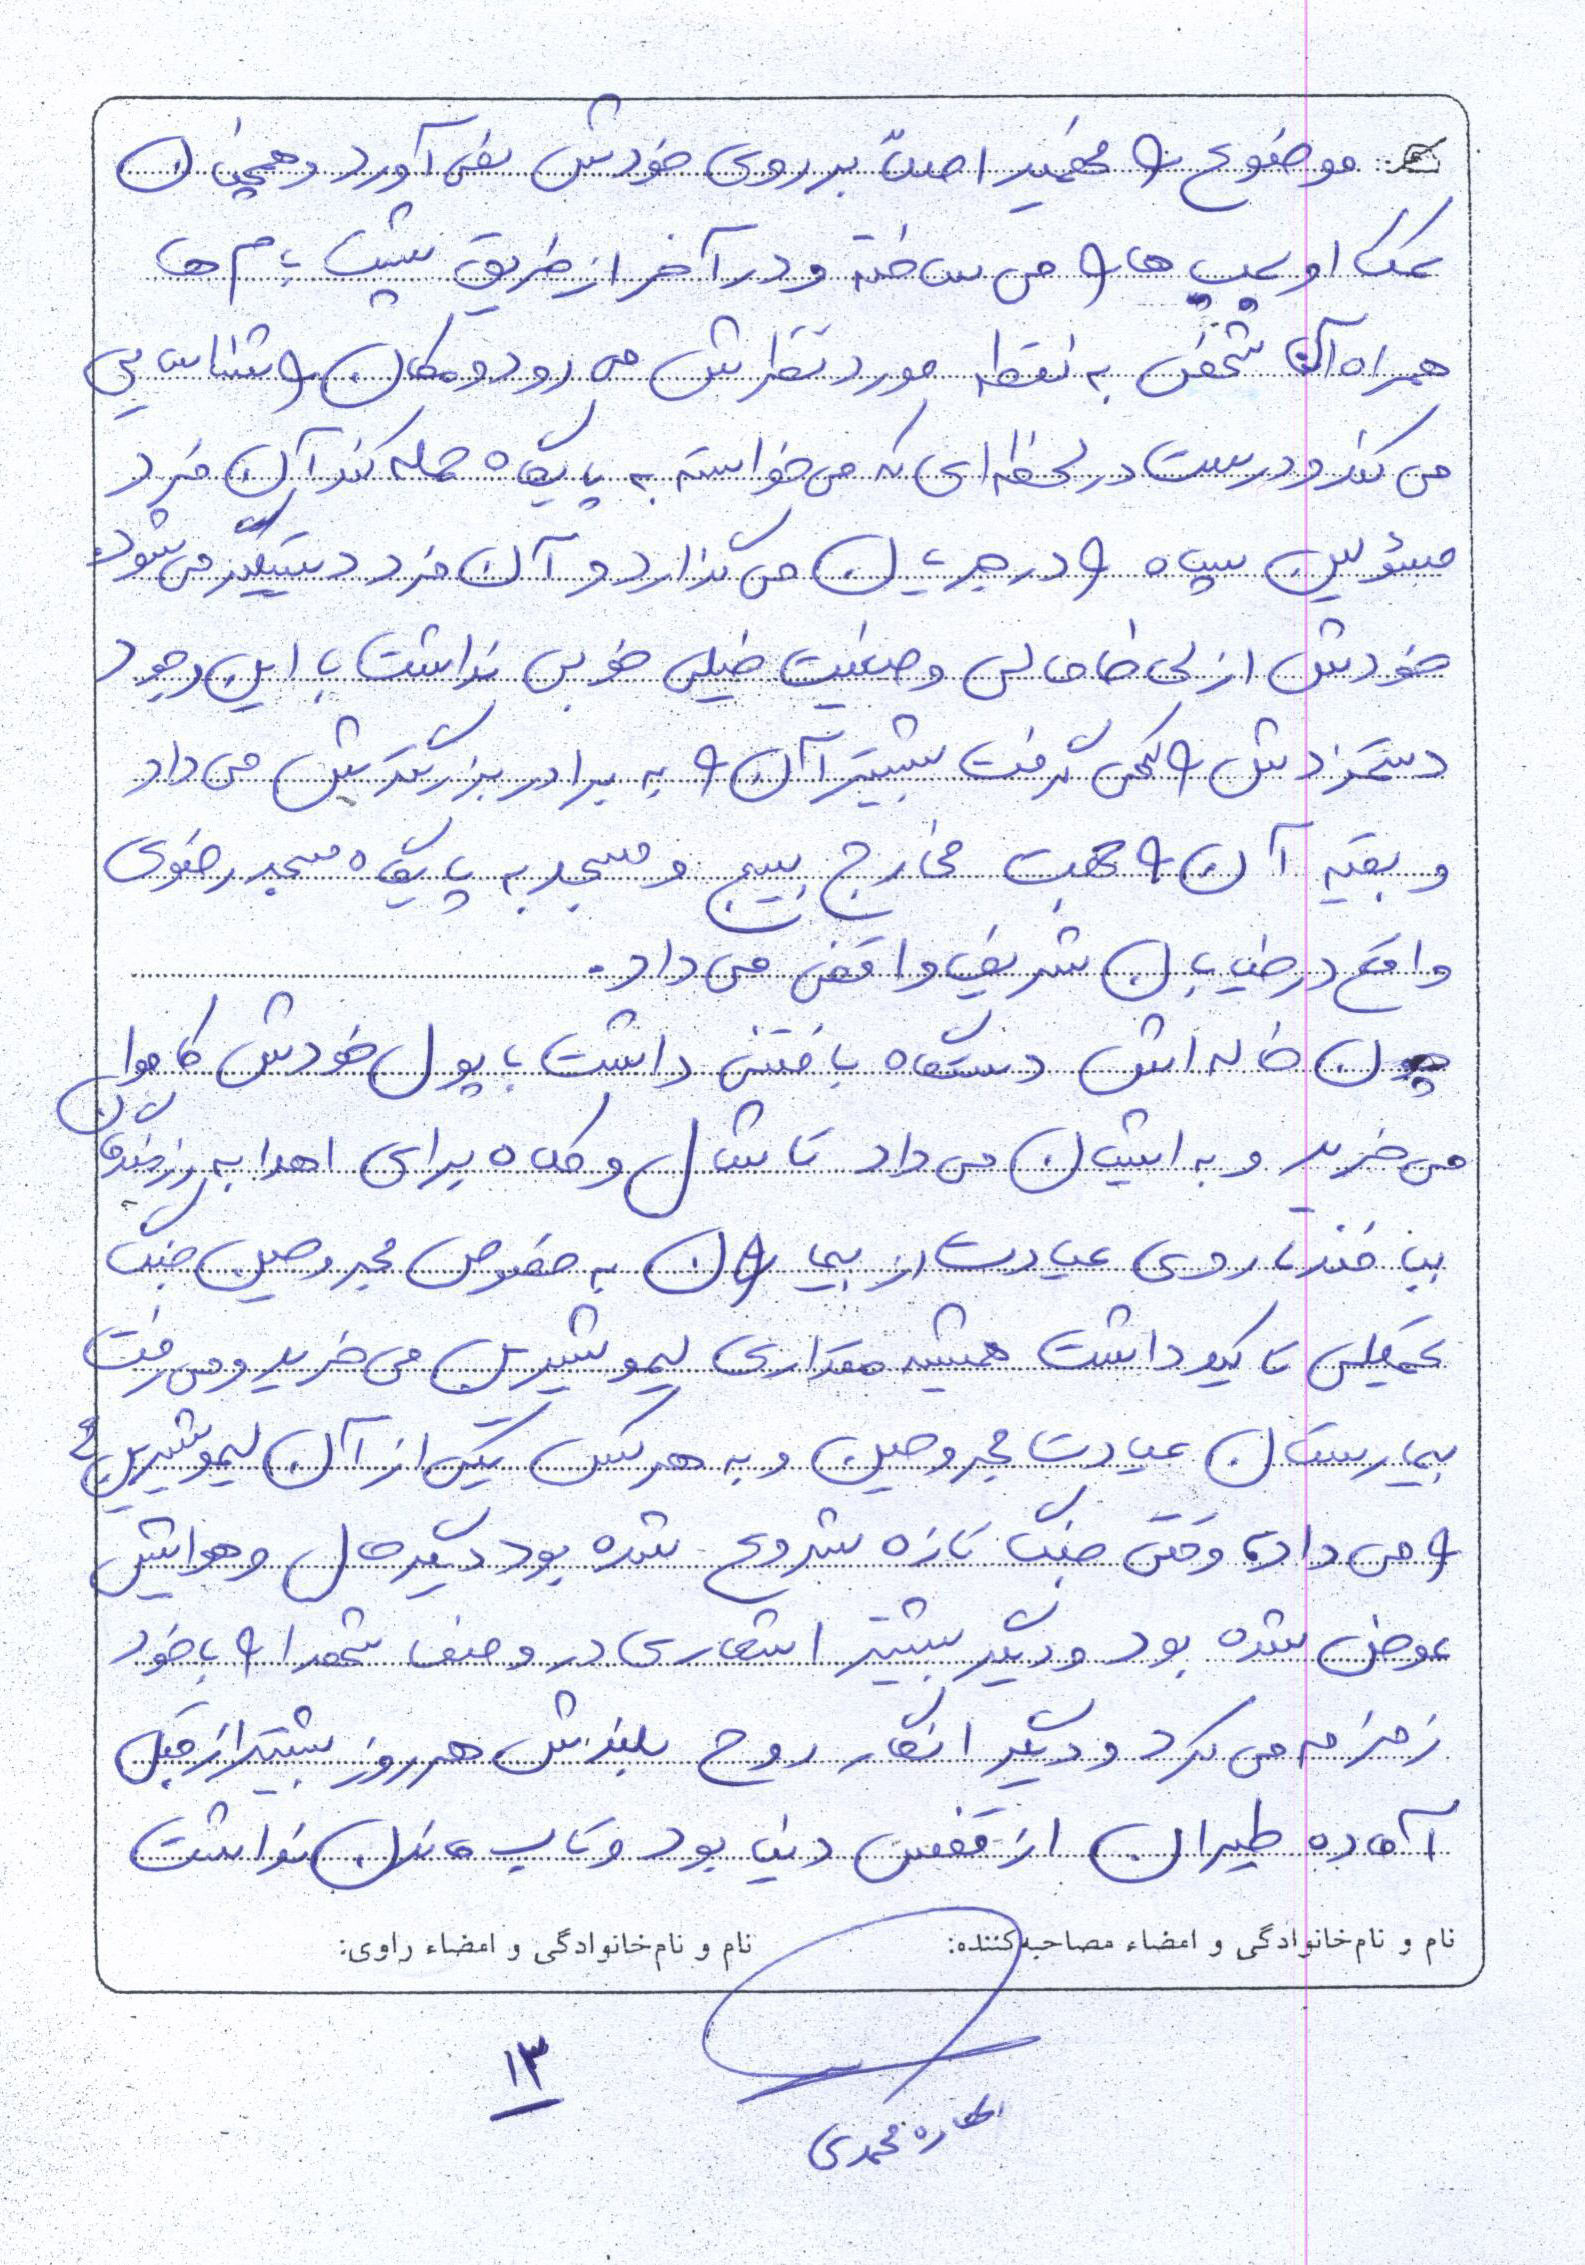 موضوع را فهمید اصلاً بر روی خودش نمی آورد و همچنان
کمک او بمب ها را می ساخته و در آخر از طریق پشت بام ها
همراه آن شخص به نقطه مورد نظرش می رود و مکان را شناسایی
می کند و درست در لحظه ای که می خواسته به پایگاه حمله کند آن فرد
مسئولین سپاه را در جریان می گذارد و آن فرد دستگیر می شود
خودش از لحاظ مالی وضعیت خیلی خوبی نداشت با این وجود
دستمزدش را که می گرفت بیشتر آن را به برادر بزرگترش می داد
و بقیه آن را جهت مخارج بسیج و مسجد به پایگاه مسجد رضوی
واقع در خیابان شریف واقفی می داد.
چون خاله اش دستگاه بافتنی داشت با پول خودش کاموا
می خرید و به ایشان می داد تا شال و کلاه برای اهدا به رزمندگان
ببافند تا روی عیادت از بیماران به خصوص مجروحین جنگ
تحمیلی تاکید داشت همیشه مقداری لیمو شیرین می خرید و می رفت
بیمارستان عیادت مجروحین و به هر کس یکی از آن لیمو شیرین ها
را می داد، وقتی جنگ تازه شروع شده بود دیگر حال و هوایش
عوض شده بود و دیگر بیشتر اشعاری در وصف شهدا را با خود
زمزمه می کرد و دیگر انگار روح بلندش هر روز بیشتر از قبل
آماده طیران از قفس دنیا بود و تاب ماندن نداشت
نام و نام‌خانوادگی و امضاء مصاحبه‌کننده: نام و نام‌خانوادگی و امضاء راوی:
۱۳
محمدی